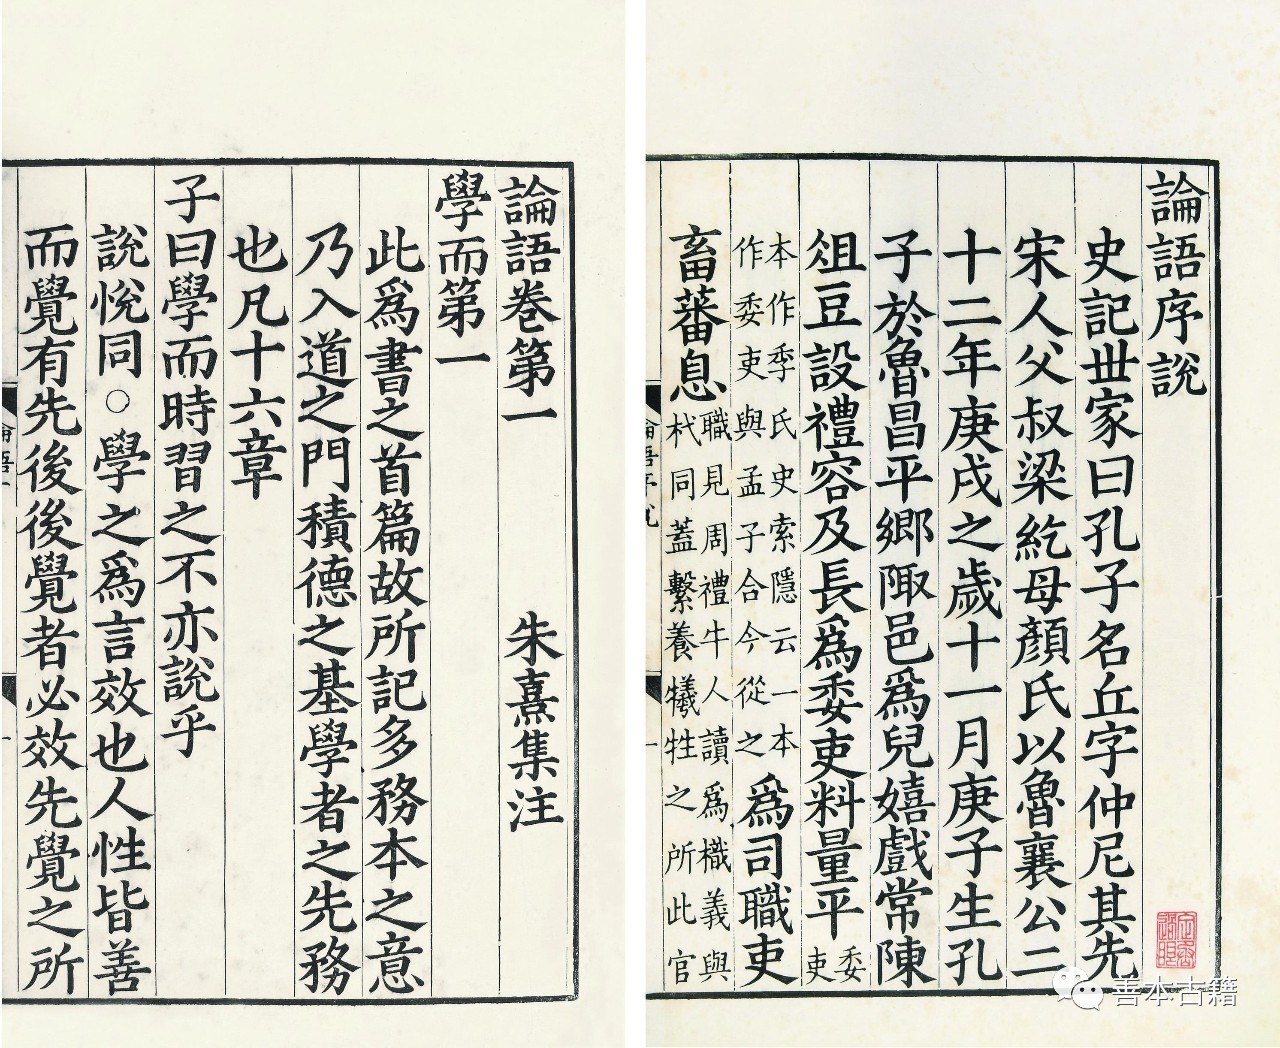 論語序說
史記世家曰孔子名丘字仲尼其先
宋人父叔梁紇母顏氏以魯襄公二
十二年庚戌之歲十一月庚子生孔
子於魯昌平鄉陬邑爲兒嬉戲常陳
俎豆設禮容及長爲委吏料量平委吏
本作季氏史索隱云一本作委吏與孟子合今從之爲司職吏
畜蕃息職見周禮牛人讀爲樴義與杙同蓋繫養犧牲之所此官
論語卷第一 朱熹集注
學而第一
此爲書之首篇故所記多務本之意
乃入道之門積德之基學者之先務
也凡十六章
子曰學而時習之不亦說乎
說悅同○學之爲言效也人性皆善
而覺有先後後覺者必效先覺之所
善本古籍